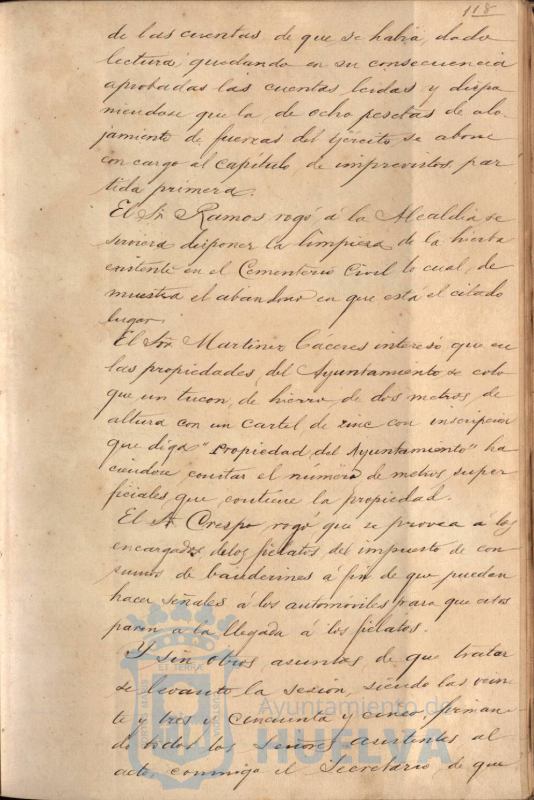 118
de las cuentas de que se había dado
lectura, quedando en su consecuencia
aprobadas las cuentas leidas y dispo
niendose que la de ocho pesetas de alo-
jamiento de fuerzas del Ejército se abone
con cargo al capítulo de imprevistos, par
tida primera.
El Sr Ramos rogó á la Alcaldia se
sirviera disponer la limpieza de la hierba
existente en el Cementerio Civil lo cual, de
muestra el abandono en que está el citado
lugar.
El Sor Martinez Caceres interesó que en
las propiedades del Ayuntamiento se colo
que un de hierro, de dos metros de
altura con un cartel de zinc con inscripcion
que diga "Propiedad del Ayuntamiento" ha
ciendose constar el número de metros super
ficiales que contiene la propiedad.
El Sr Crespo rogó que se provea á los
encargados de los fielatos del impuesto de con-
sumos de banderines á fin de que puedan
hacer señales á los automóviles para que estos
paren a la llegada á los fielatos.
Y sin otros asuntos de que tratar
se levantó la sesion, siendo las vein-
te y tres y cincuenta y cinco, firman-
do todos los Señores asistentes al
acto, conmigo el Secretario, de que
PORTUS MARIS ET TERRAE CUSTODIA
Ayuntamiento de
HUELVA